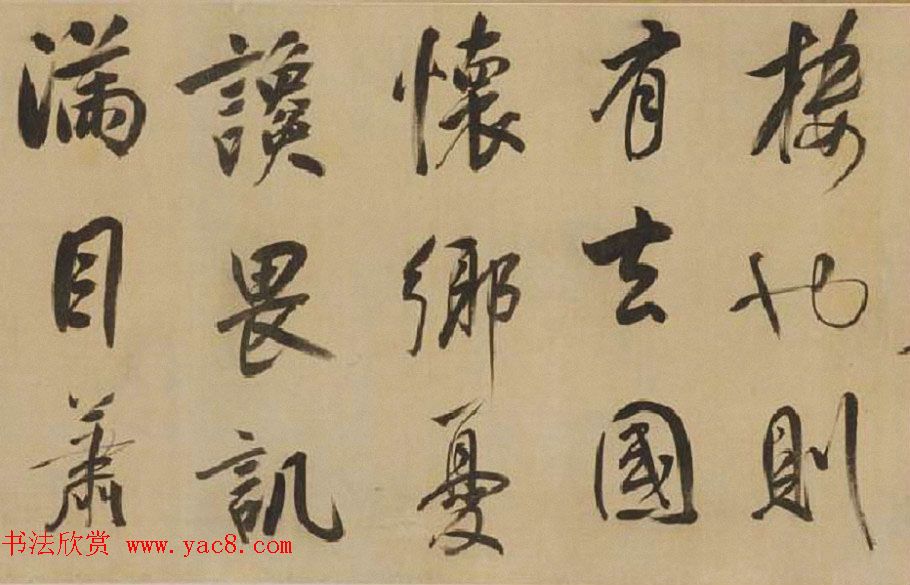 樓也則
有去國
懷鄉憂
讒畏譏
滿目蕭
书法欣赏 www.yac8.com